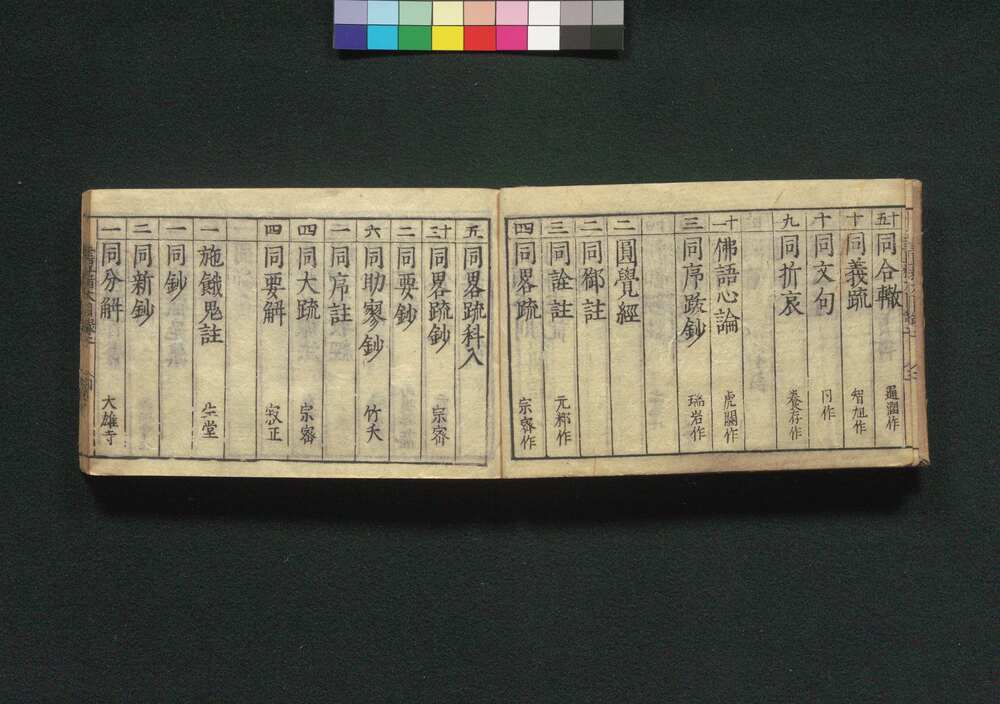 十五 同合轍 通潤作
十 同義疏 智旭作
十 同文句 同作
九 同折衷 養存作
十一 佛語心論 虎關作
三 同序跋鈔 瑞岩作
二 圓覺經
二 同御註
三 同詮註 元粹作
四 同畧疏 宗密作
五 同畧疏科入
三十 同畧疏鈔 宗密
二 同要鈔
六 同助寥鈔 竹夭
一 同序註
四 同大疏 宗密
四 同要解 寂正
一 施餓鬼註 生堂
一 同鈔
二 同新鈔
一 同分解 大雄寺